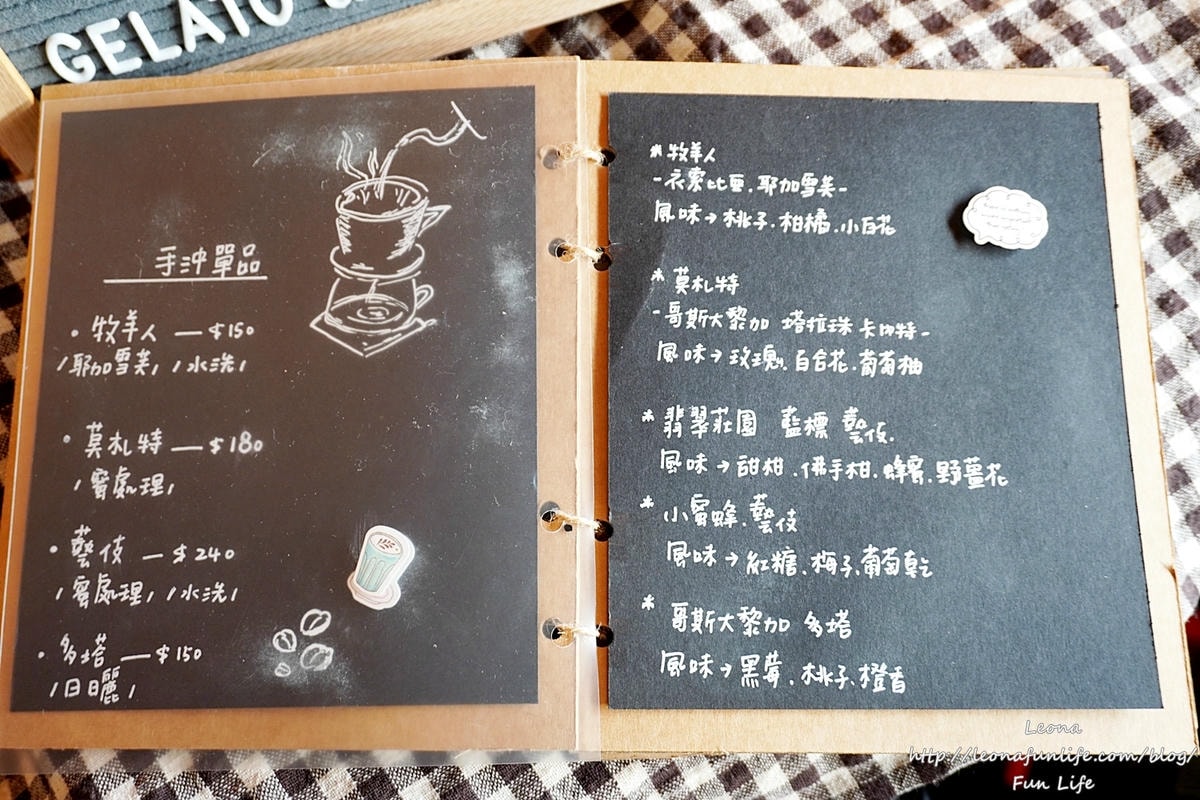 GELATO
手沖單品
• 牧羊人 — $150
/耶加雪菲/ /水洗/
• 莫札特 — $180
/蜜處理/
• 藝伎 — $240
/蜜處理/ /水洗/
• 多塔 — $150
/日曬/
* 牧羊人
-衣索比亞.耶加雪菲-
風味→桃子.柑橘.小白花
* 莫札特
-哥斯大黎加 塔拉珠 卡內特-
風味→玫瑰.百合花.葡萄柚
* 翡翠莊園 藍標 藝伎.
風味→甜柑.佛手柑.蜂蜜.野薑花
* 小蜜蜂.藝伎
風味→紅糖.梅子.葡萄乾
* 哥斯大黎加 多塔
風味→黑莓.桃子.橙香
Leona
http://leonafunlife.com/blog/
Fun Life